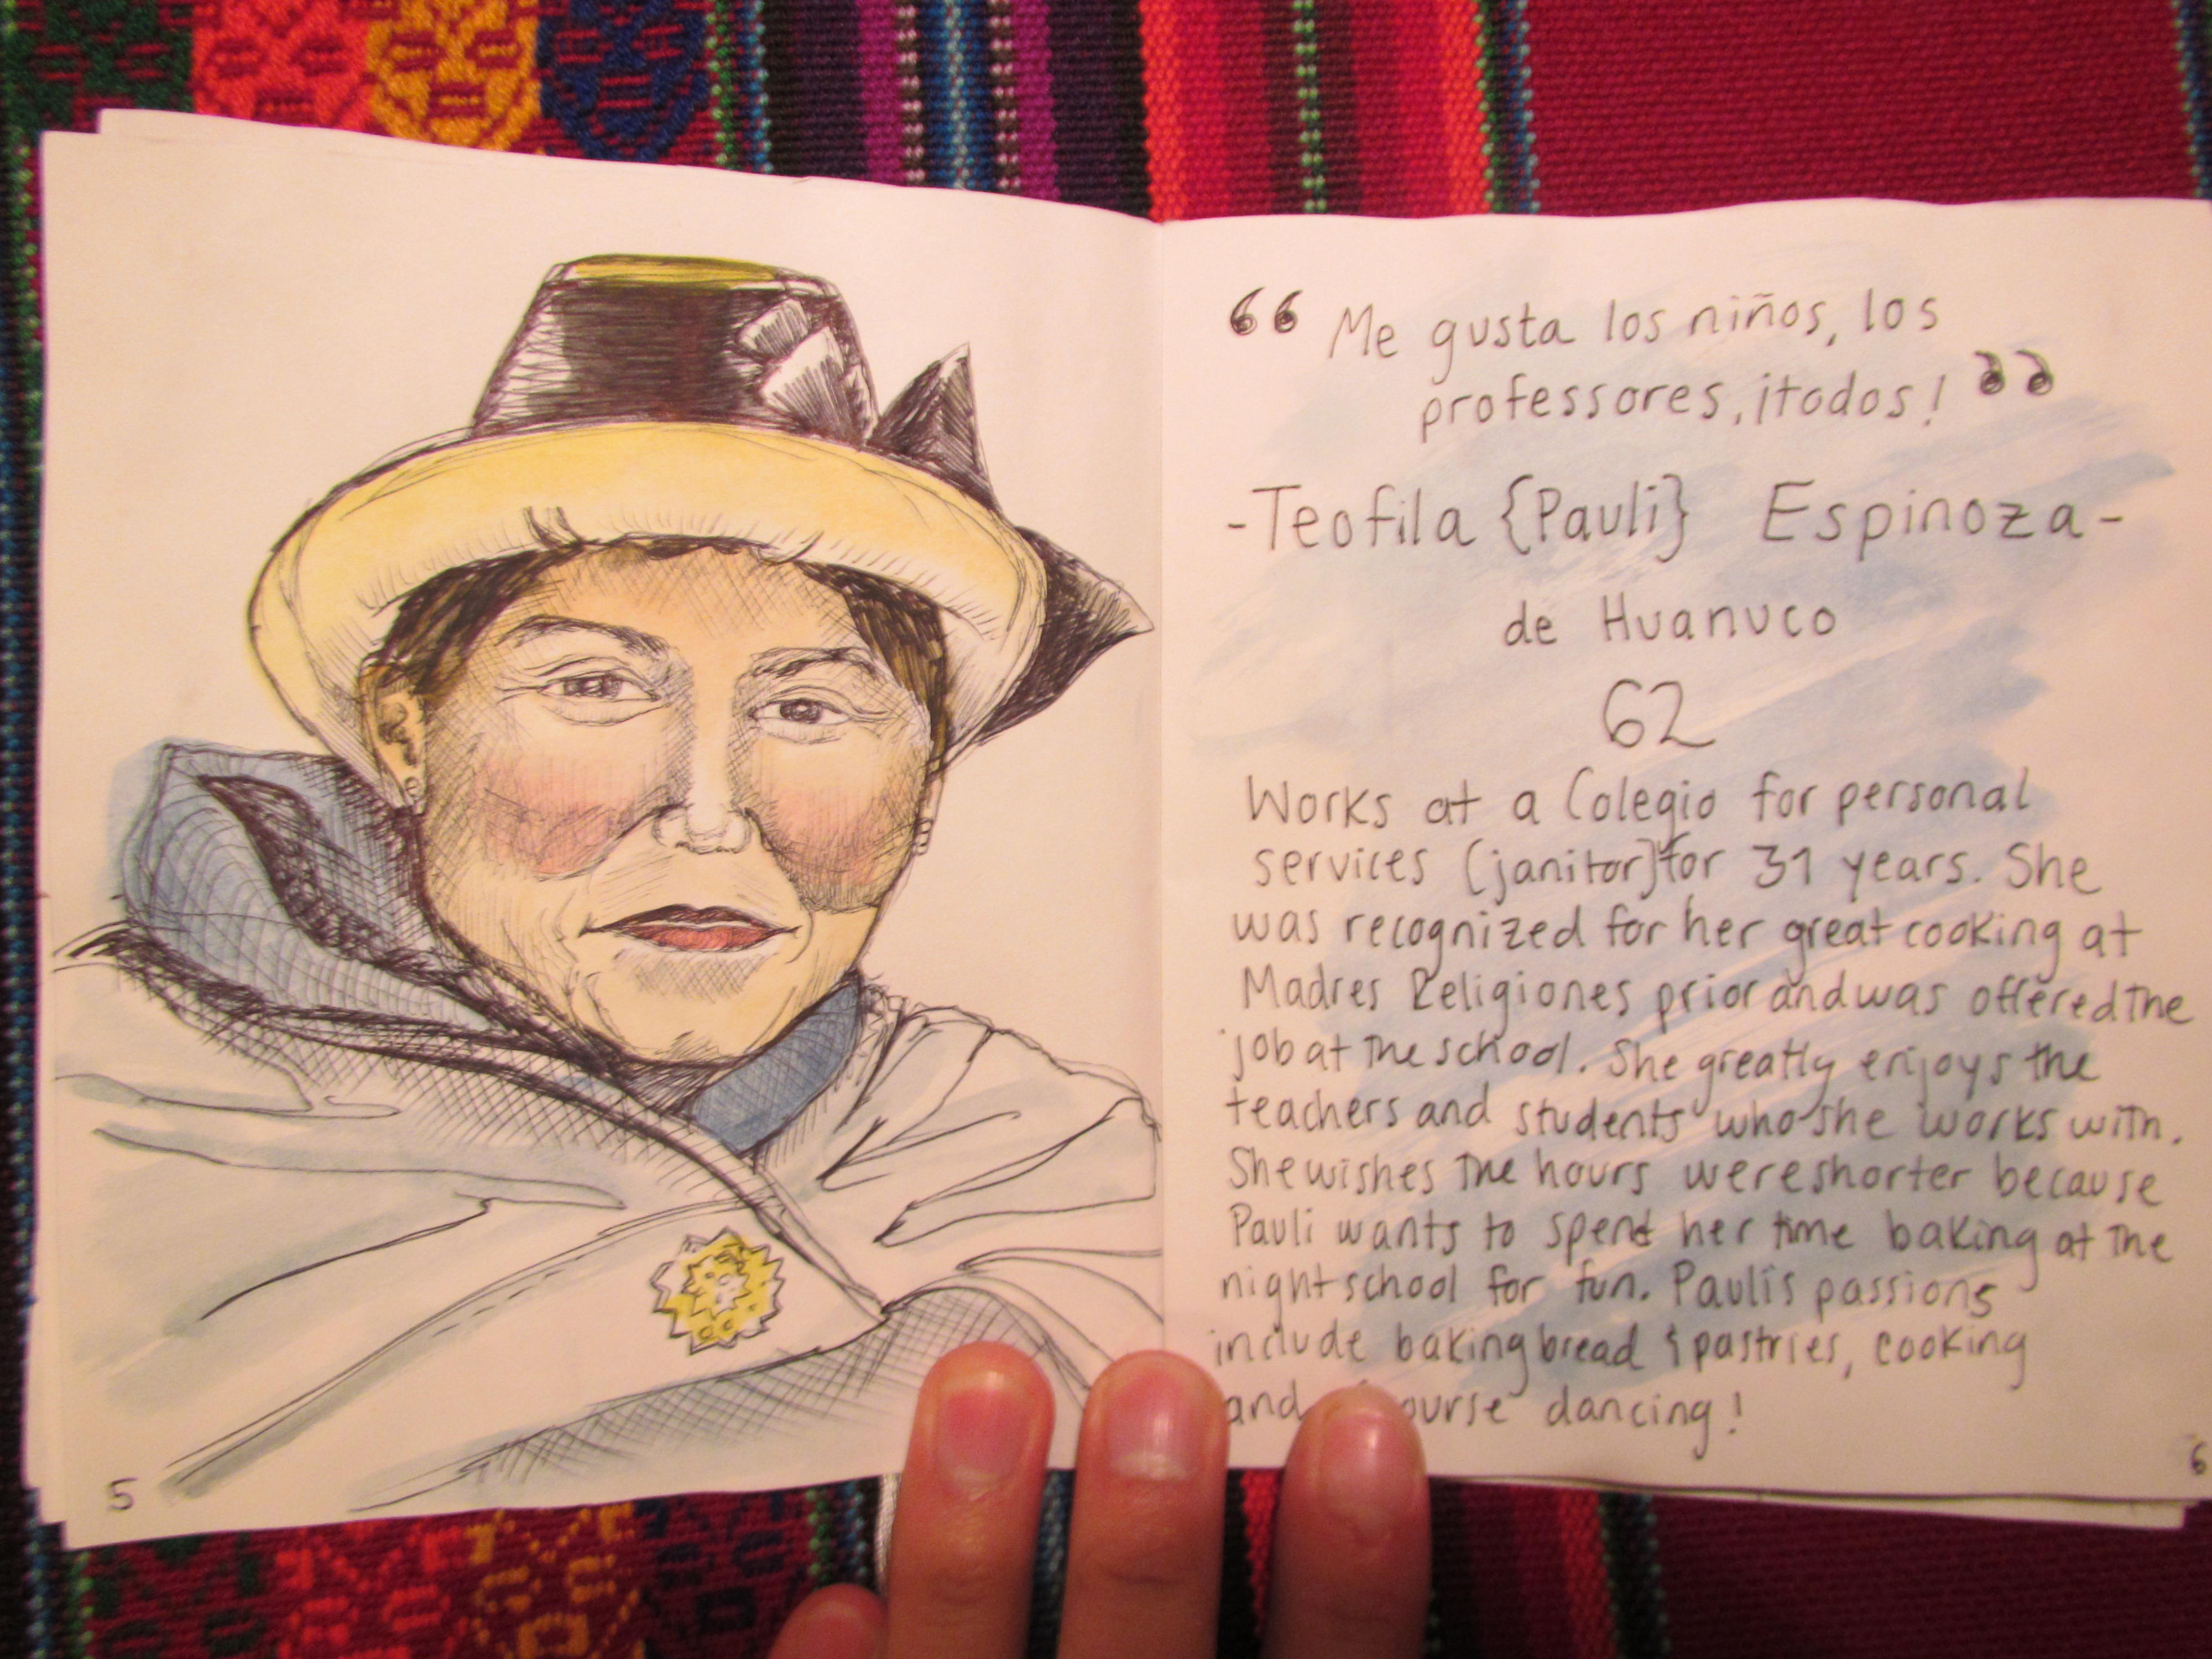 “Me gusta los niños, los
professores, ¡todos!”
-Teofila {Pauli} Espinoza-
de Huanuco
62
Works at a Colegio for personal
services (janitor) for 31 years. She
was recognized for her great cooking at
Madres Religiones prior and was offered the
job at the school. She greatly enjoys the
teachers and students who she works with.
She wishes the hours were shorter because
Pauli wants to spend her time baking at the
night school for fun. Pauli's passions
include baking bread & pastries, cooking
and course dancing!
5
6